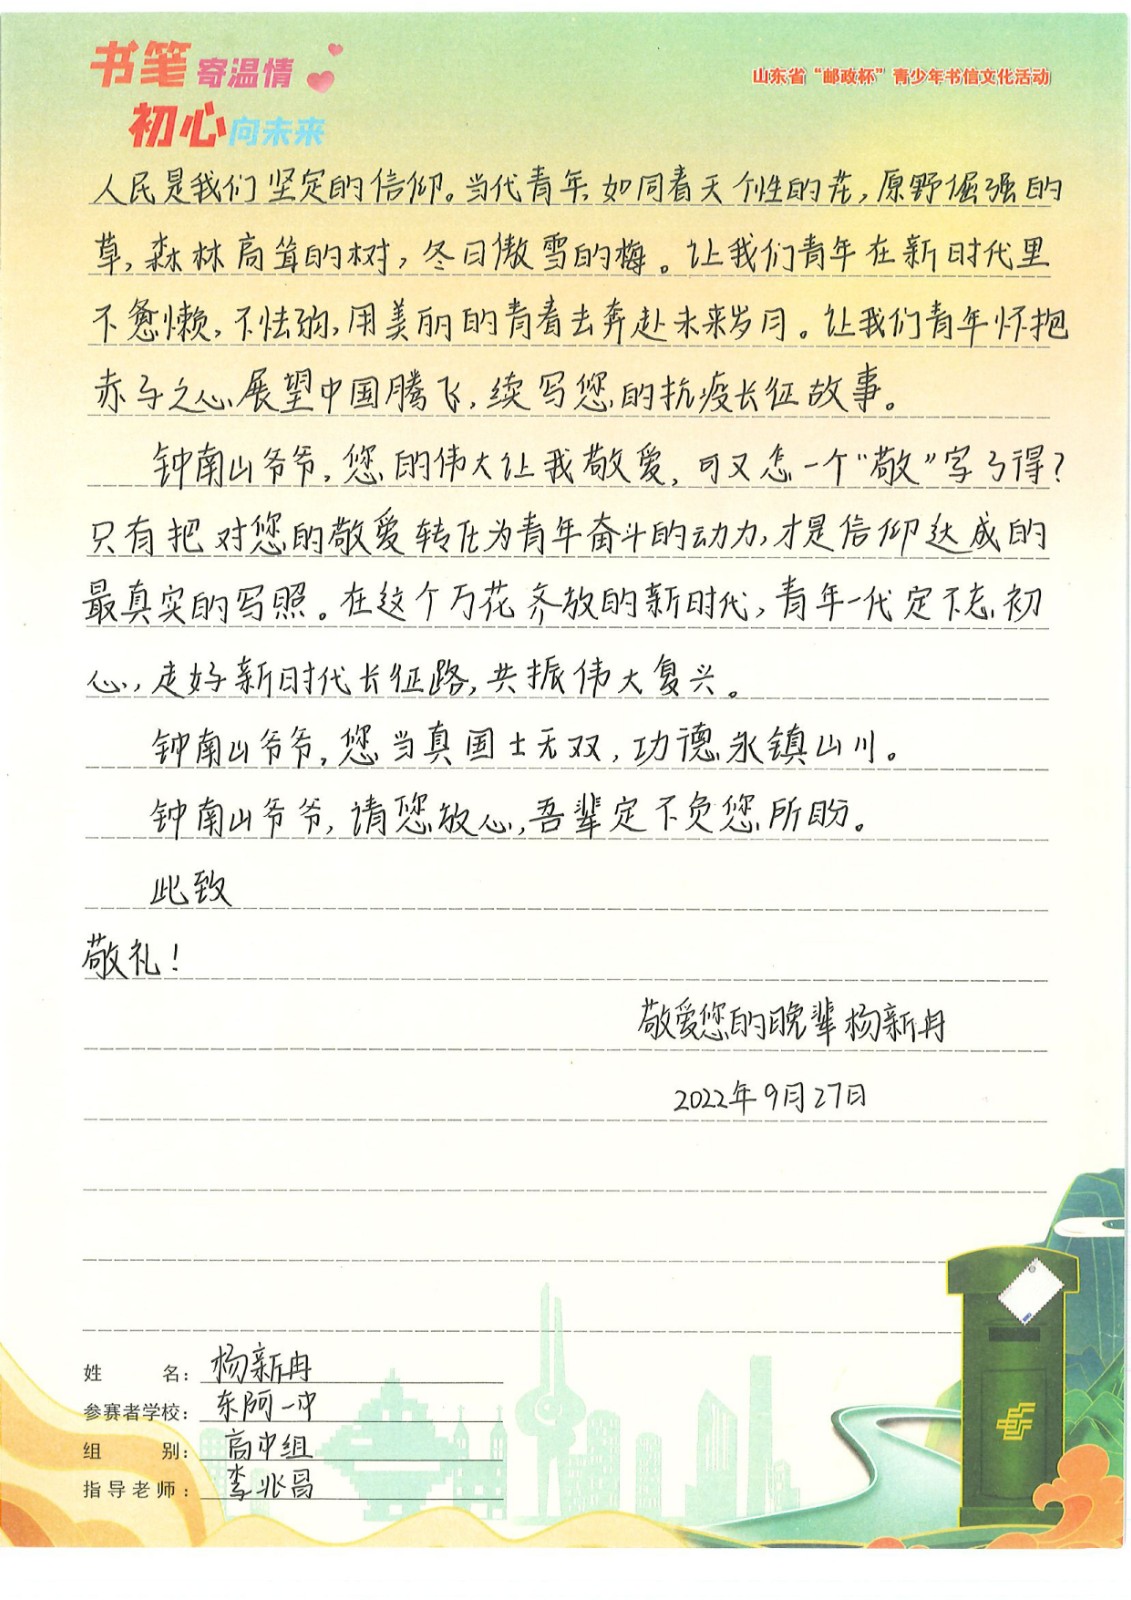 书笔寄温情
初心向未来
山东省“邮政杯”青少年书信文化活动
人民是我们坚定的信仰。当代青年,如同春天个性的花,原野倔强的
草,森林高耸的树,冬日傲雪的梅。让我们青年在新时代里
不惫懒,不怯弱,用美丽的青春去奔赴未来岁月。让我们青年怀抱
赤子之心,展望中国腾飞,续写您的抗疫长征故事。
钟南山爷爷,您的伟大让我敬爱,可又怎一个“敬”字了得?
只有把对您的敬爱转化为青年奋斗的动力,才是信仰达成的
最真实的写照。在这个万花齐放的新时代,青年一代定不忘初
心,走好新时代长征路,共振伟大复兴。
钟南山爷爷,您当真国士无双,功德永镇山川。
钟南山爷爷,请您放心,吾辈定不负您所盼。
此致
敬礼!
敬爱您的晚辈 杨新冉
2022年9月27日
姓 名: 杨新冉
参赛者学校: 东阿一中
组 别: 高中组
指导老师: 李兆昌